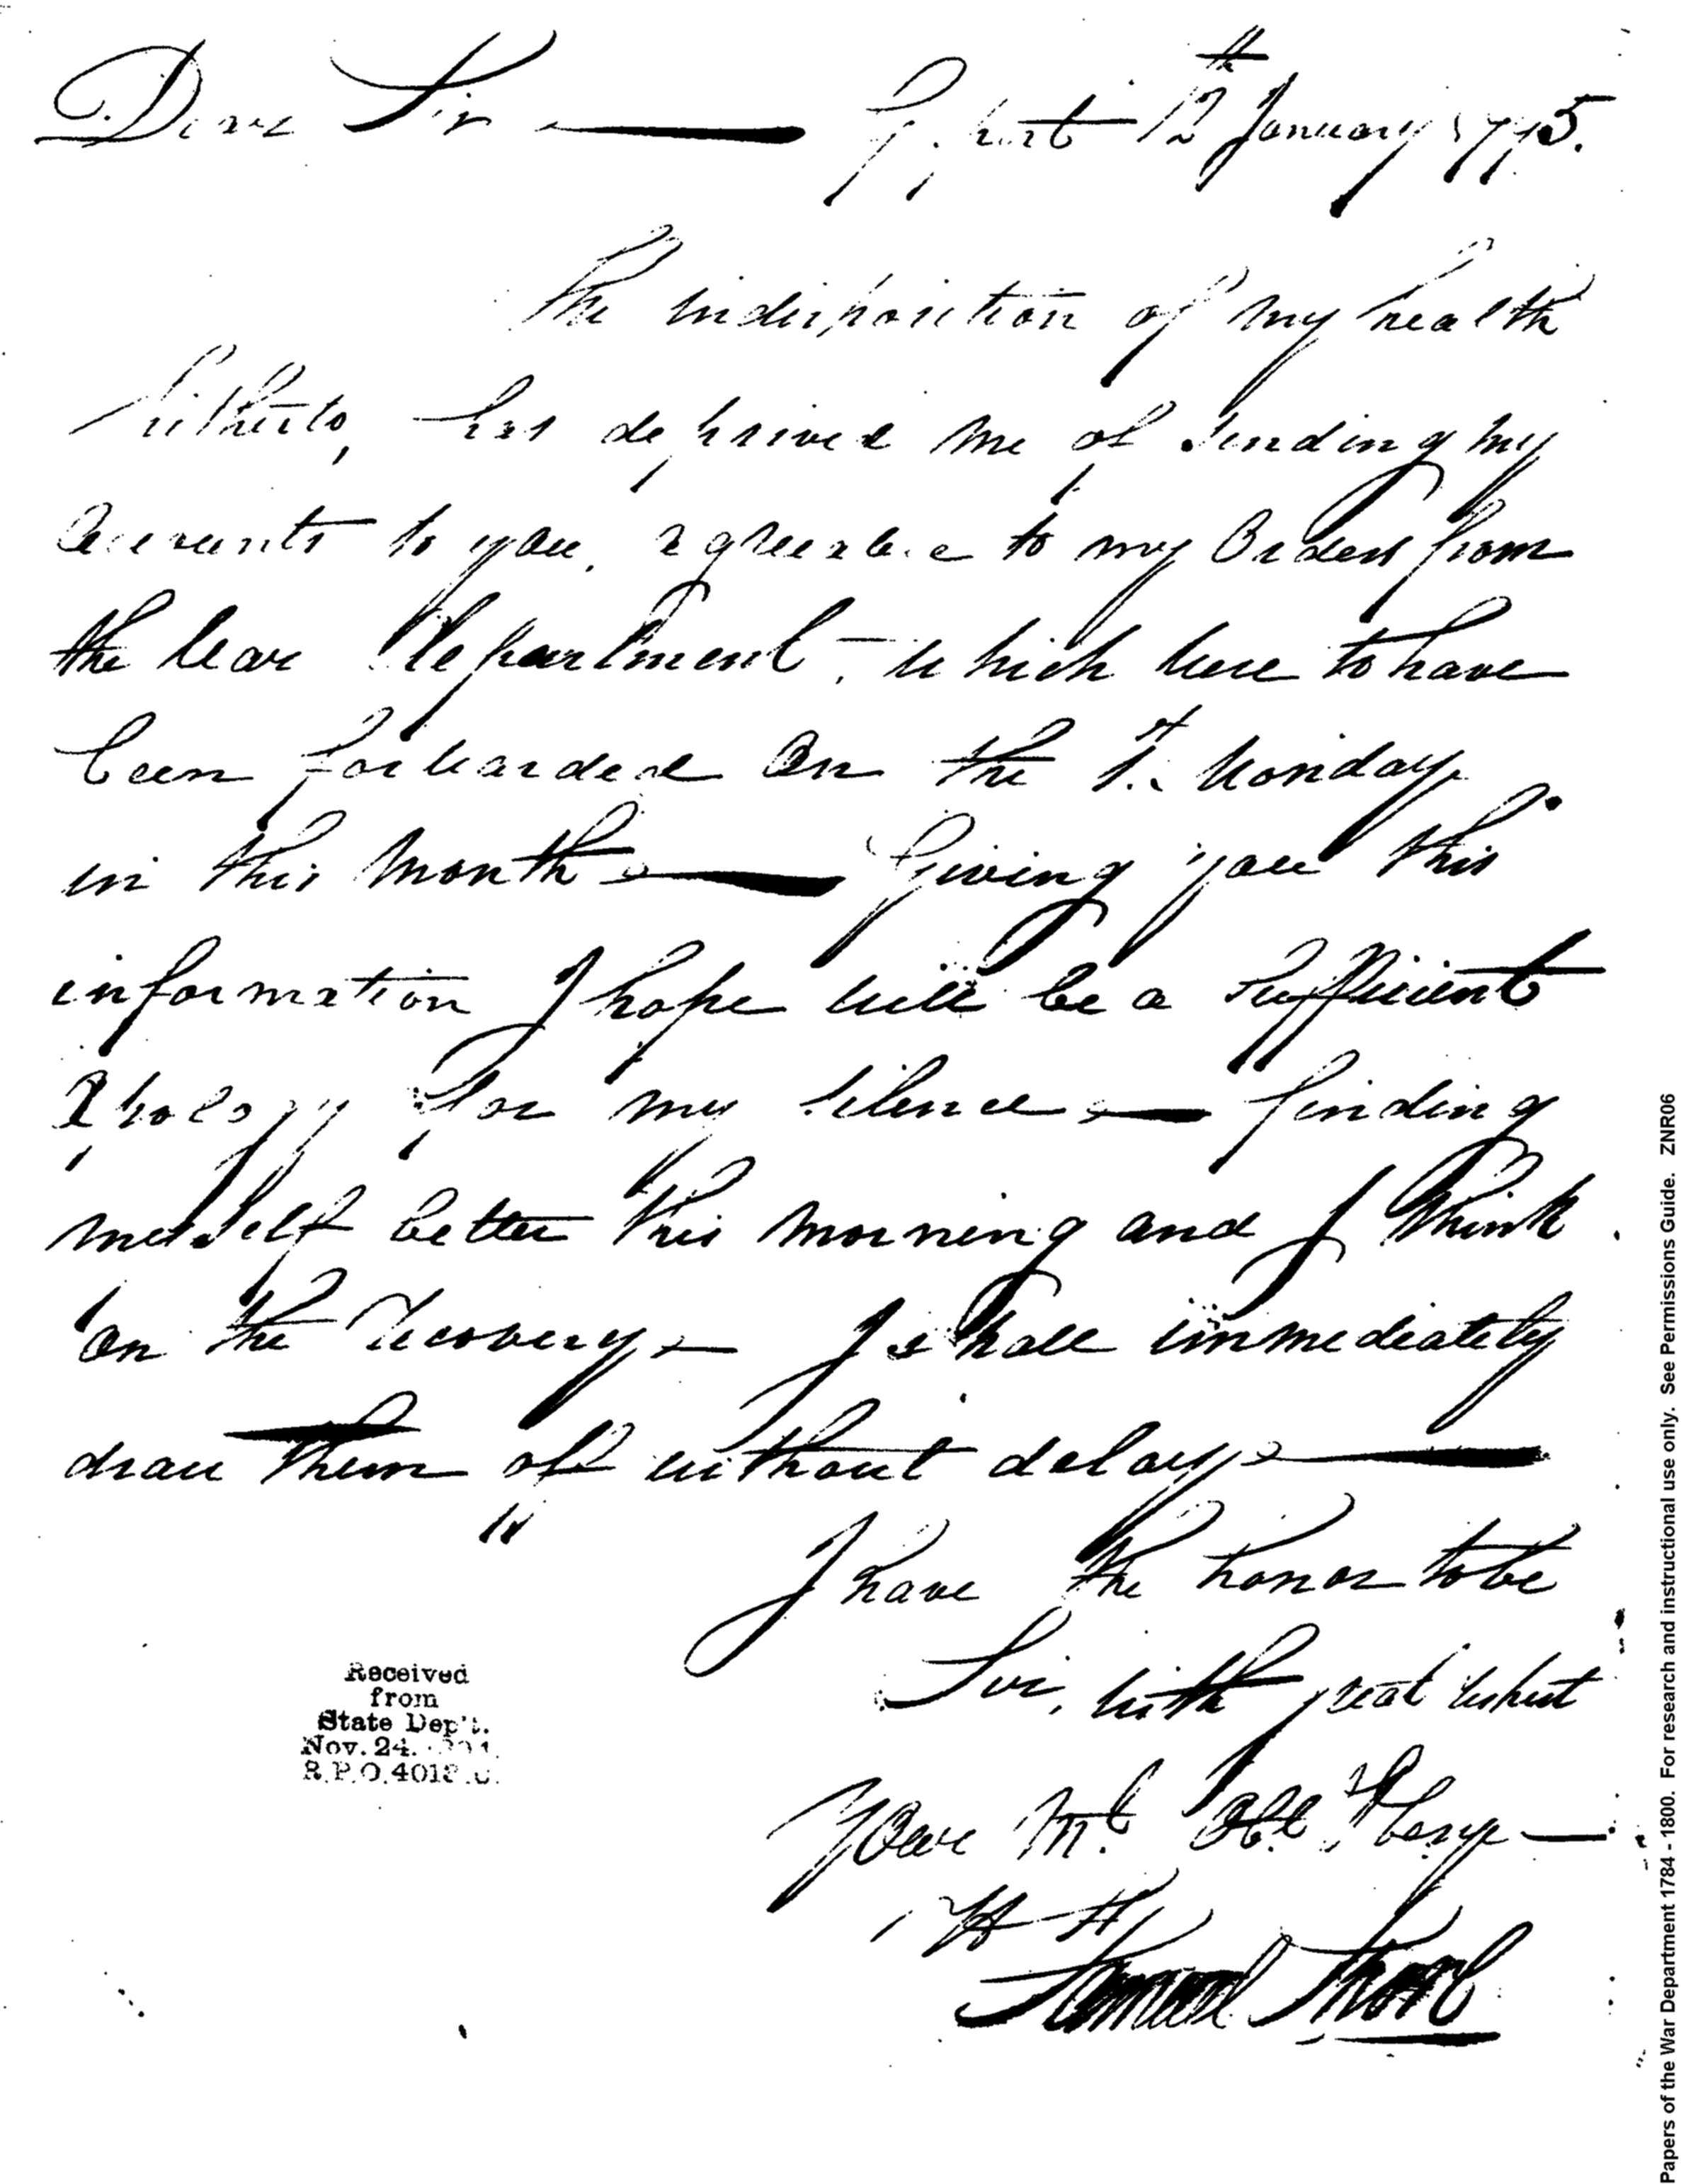 Dear Sir — 12th January 1795.
The indisposition of my health
hitherto, has deprived me of sending my
Accounts to you, agreeable to my Orders from
the War Department, which were to have
been forwarded On the 1st Monday
in this Month — Giving you this
information I hope will be a Sufficient
Apology for my Silence — finding
meself better this morning and I think
on the Recovery — I shall immediately
draw them off without delay —
I have the honor to be
Sir, with great respect
Your Mt Obt
Samuel
Received
from
State Dep't.
Nov. 24.
R.P.O. 401
Papers of the War Department 1784 - 1800. For research and instructional use only. See Permissions Guide. ZNR06